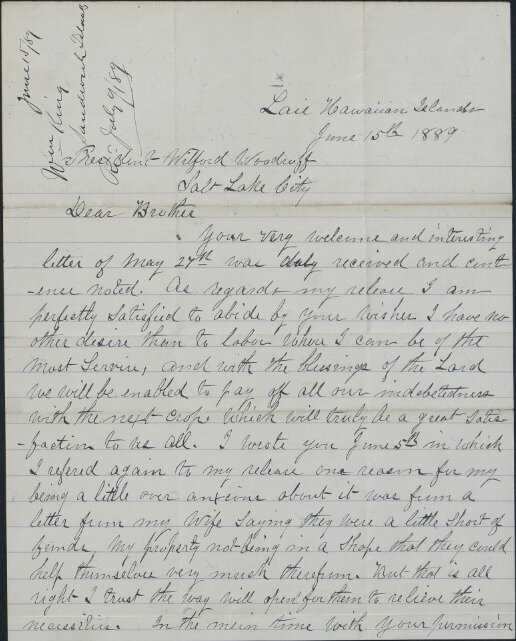 June 15/89
Wm King
Sandwich Islands
Rec. July 9/89
Laie Hawaiian Islands
June 15th 1889
President Wilford Woodruff
Salt Lake City
Dear Brother
Your very welcome and interesting
letter of May 27th was duly received and cont
-ence noted. As regards my release I am
perfectly satisfied to abide by your wishes I have no
other desire than to labor where I can be of the
most Service, and with the blessings of the Lord
we will be enabled to pay off all our indebtedness
with the next crop. Which will truly be a great satis
-faction to us all. I wrote you June 5th in which
I refered again to my release one reason for my
being a little over anxious about it was from a
letter from my Wife saying they were a little short of
funds, my property not being in a shape that they could
help themselves very much therefrom. But that is all
right I trust the way will open for them to relieve their
necessities. In the mein time with your permission